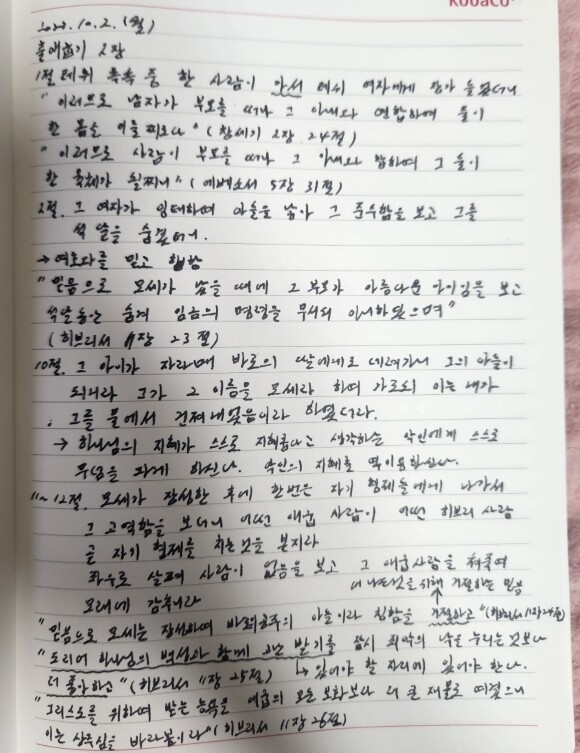 KodaCo
10. 2. (월)
출애굽기 2장
1절 레위 족속 중 한 사람이 가서 레위 여자에게 장가 들었더니
"이러므로 남자가 부모를 떠나 그 아내와 연합하여 둘이
한 몸을 이룰찌로다" (창세기 2장 24절)
"이러므로 사람이 부모를 떠나 그 아내와 합하여 그 둘이
한 육체가 될찌니" (에베소서 5장 31절)
2절. 그 여자가 잉태하여 아들을 낳아 그 준수함을 보고 그를
석 달을 숨겼더니.
→ 여호와를 믿고 행함
"믿음으로 모세가 났을 때에 그 부모가 아름다운 아이임을 보고
석달 동안 숨겨 임금의 명령을 무서워 아니하였으며"
(히브리서 11장 23절)
10절. 그 아이가 자라매 바로의 딸에게로 데려가니 그의 아들이
되니라 그가 그 이름을 모세라 하여 가로되 이는 내가
그를 물에서 건져내었음이라 하였더라.
→ 하나님의 지혜가 스스로 지혜롭다고 생각하는 악인에게 스스로
무덤을 파게 하신다. 악인의 지혜를 역이용하신다.
11~12절. 모세가 장성한 후에 한번은 자기 형제들에게 나가서
그 고역함을 보더니 어떤 애굽 사람이 어떤 히브리 사람
곧 자기 형제를 치는것을 본지라
좌우로 살펴 사람이 없음을 보고 그 애굽사람을 쳐죽여
더 나은것을 위해 거절하는 믿음
모래에 감추니라
"믿음으로 모세는 장성하여 바로의 공주의 아들이라 칭함을 거절하고" (히브리서 11장 24절)
"도리어 하나님의 백성과 함께 고난 받기를 잠시 죄악의 낙을 누리는 것보다
더 좋아하고" (히브리서 11장 25절) → 있어야 할 자리에 있어야 한다.
"그리스도를 위하여 받는 능욕을 애굽의 모든 보화보다 더 큰 재물로 여겼으니
이는 상주심을 바라봄이라" (히브리서 11장 26절)